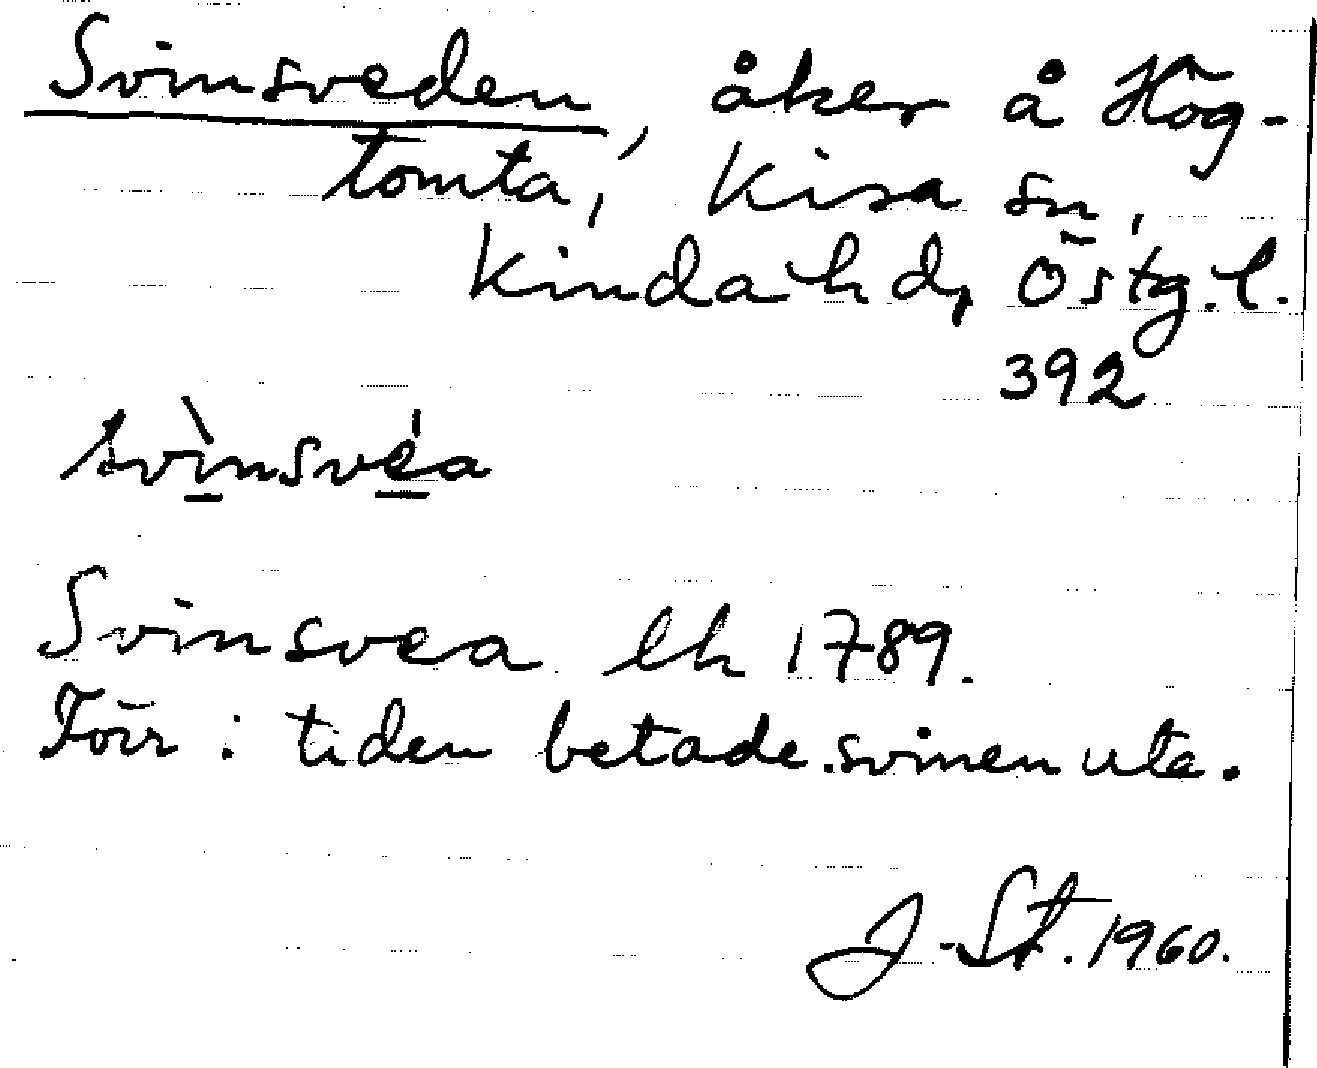 Svinsveden, åker å Hög-
tomta, Kisa sn,
Kinda hd, Östg.l.
392
svì̠nsvé̠a
Svinsvea lh 1789.
Förr i tiden betade svinen uta.
J. St. 1960.